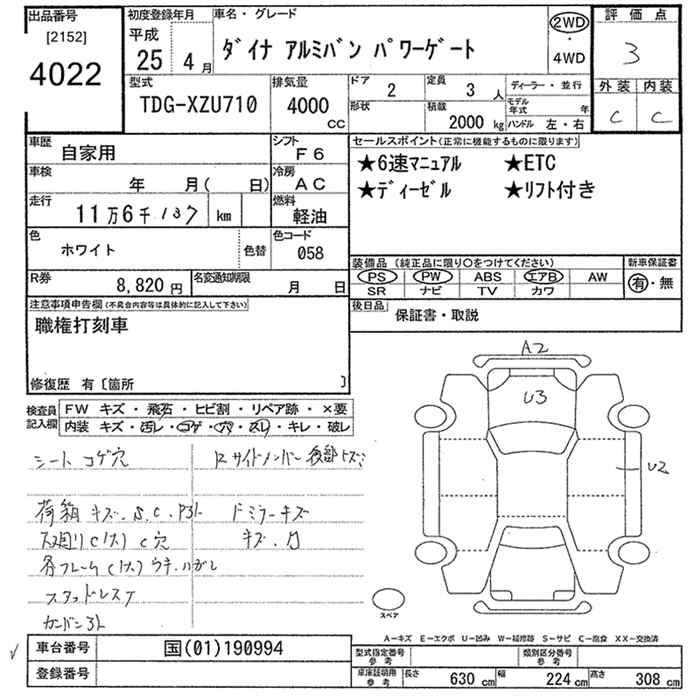 出品番号 [2152] 4022
初度登録年月 平成 25年 4月
車名・グレード ダイナ アルミバン パワーゲート
2WD・4WD
評価点 3
外装 C 内装 C
型式 TDG-XZU710
排気量 4000 CC
ドア 2
形状
定員 3人
積載 2000 kg
ディーラー・並行
モデル年式 年
ハンドル 左・右
車歴 自家用
シフト F6
セールスポイント(正常に機能するものに限ります)
★6速マニュアル ★ETC
★ディーゼル ★リフト付き
車検 年 月( 日)
冷房 AC
走行 11万6千137 km
燃料 軽油
色 ホワイト 色替
色コード 058
装備品(純正品に限り○をつけてください)
PS PW ABS エアB AW
SR ナビ TV カワ
新車保証書 有・無
R券 8,820円
名変通知期限 月 日
後日品 保証書・取説
注意事項申告欄(不具合内容等は具体的に記入して下さい)
職権打刻車
修復歴 有〔箇所 〕
検査員記入欄
FW キズ・飛石・ヒビ割・リペア跡・×要
内装 キズ・汚レ・コゲ・穴・スレ・キレ・破レ
シート コゲ穴
Rサイドメンバー後部キズ
荷箱 キズ.S.C.
ドミラーキズ
C穴
キズ.
各フレーム
スタッドレス
A2
U3
U2
スペア
A−キズ E−エクボ U−凹み W−補修跡 S−サビ C−腐食 XX−交換済
車台番号 国(01)190994
登録番号
型式指定番号 参考
類別区分番号 参考
車庫証明用 参考 長さ 630 cm 幅 224 cm 高さ 308 cm